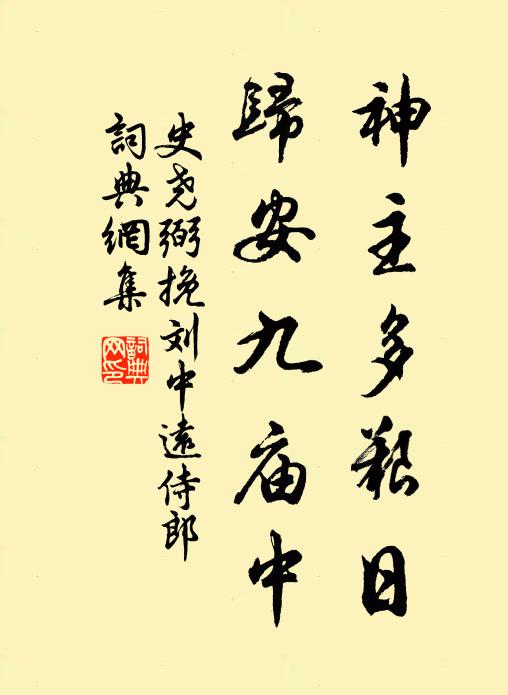 神主多艱日
歸安九庙中
史尧弼挽刘中遠侍郎
詞典網集
詞典网印